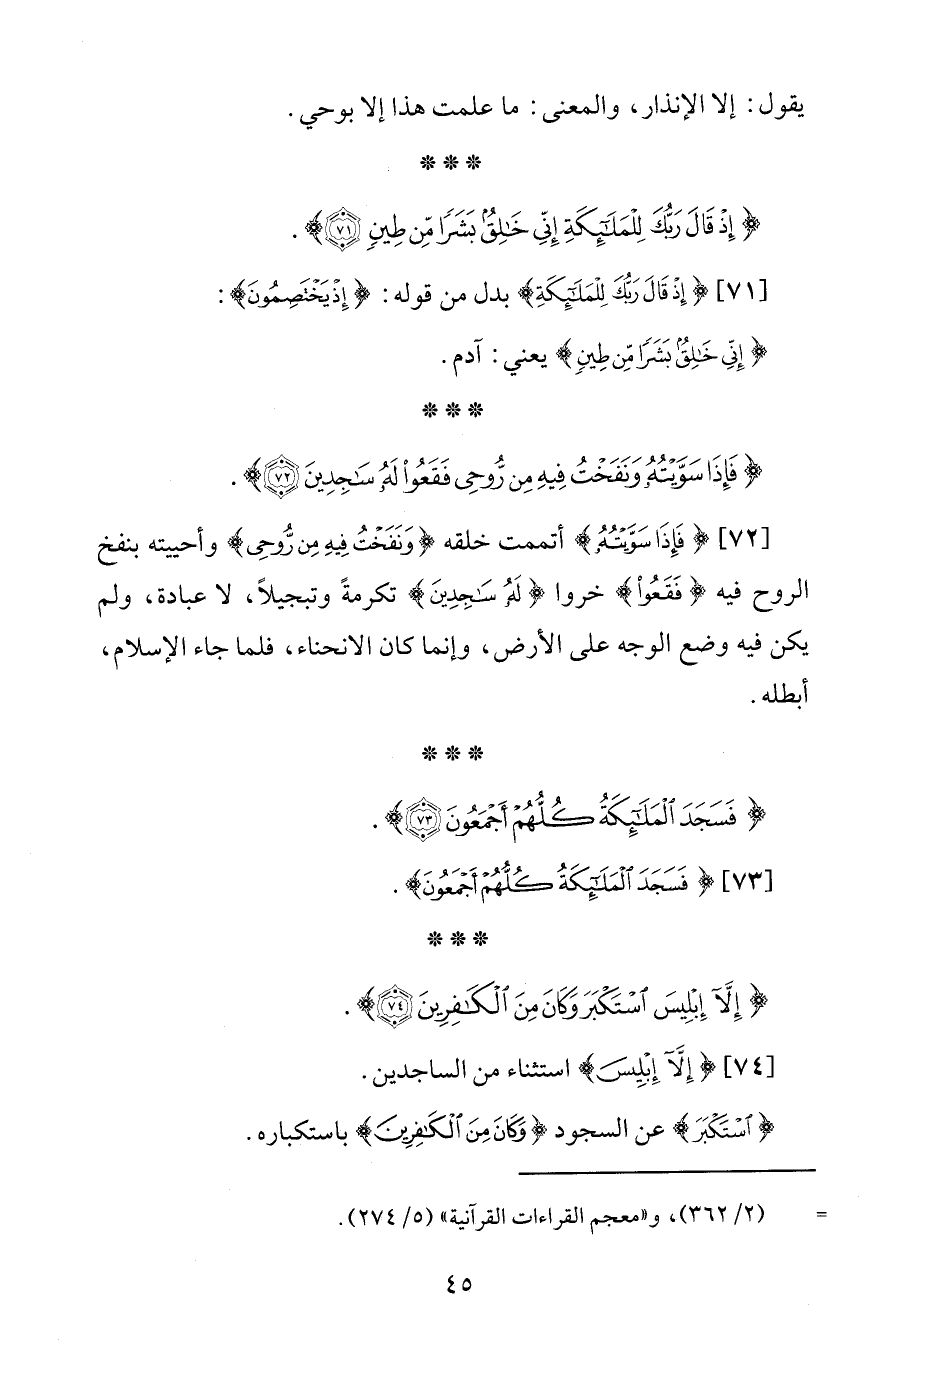 يقول: إلا الإنذار، والمعنى: ما علمت هذا إلا بوحي.
* * *
﴿ إِذْ قَالَ رَبُّكَ لِلْمَلَٰٓئِكَةِ إِنِّى خَٰلِقٌۢ بَشَرًا مِّن طِينٍ ٧١﴾.
[٧١] ﴿ إِذْ قَالَ رَبُّكَ لِلْمَلَٰٓئِكَةِ﴾ بدل من قوله: ﴿ إِذْ يَخْتَصِمُونَ﴾:
﴿ إِنِّى خَٰلِقٌۢ بَشَرًا مِّن طِينٍ﴾ يعني: آدم.
* * *
﴿ فَإِذَا سَوَّيْتُهُۥ وَنَفَخْتُ فِيهِ مِن رُّوحِى فَقَعُوا۟ لَهُۥ سَٰجِدِينَ ٧٢﴾.
[٧٢] ﴿ فَإِذَا سَوَّيْتُهُۥ﴾ أتممت خلقه ﴿وَنَفَخْتُ فِيهِ مِن رُّوحِى﴾ وأحييته بنفخ
الروح فيه ﴿ فَقَعُوا۟﴾ خروا ﴿ لَهُۥ سَٰجِدِينَ﴾ تكرمةً وتبجيلاً، لا عبادة، ولم
يكن فيه وضع الوجه على الأرض، وإنما كان الانحناء، فلما جاء الإسلام،
أبطله.
* * *
﴿ فَسَجَدَ ٱلْمَلَٰٓئِكَةُ كُلُّهُمْ أَجْمَعُونَ ٧٣﴾.
[٧٣] ﴿ فَسَجَدَ ٱلْمَلَٰٓئِكَةُ كُلُّهُمْ أَجْمَعُونَ﴾.
* * *
﴿ إِلَّآ إِبْلِيسَ ٱسْتَكْبَرَ وَكَانَ مِنَ ٱلْكَٰفِرِينَ ٧٤﴾.
[٧٤] ﴿ إِلَّآ إِبْلِيسَ﴾ استثناء من الساجدين.
﴿ ٱسْتَكْبَرَ﴾ عن السجود ﴿ وَكَانَ مِنَ ٱلْكَٰفِرِينَ﴾ باستكباره.
= (٢/ ٣٦٢)، و«معجم القراءات القرآنية» (٥/ ٢٧٤).
٤٥